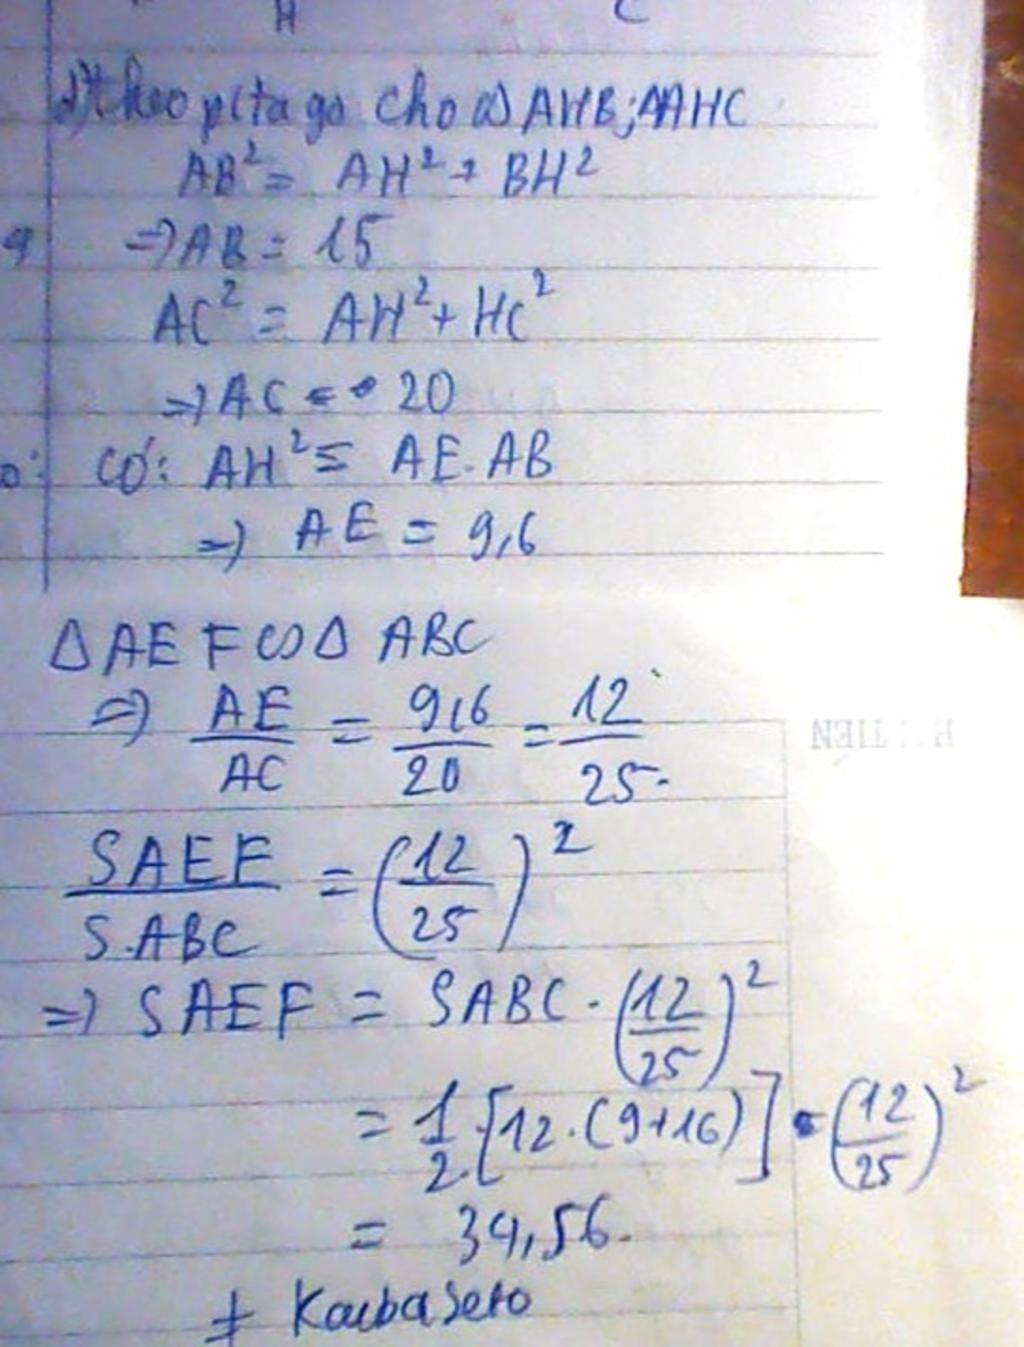 H C
d) theo pitago cho ∆ AHB; ∆AHC
AB² = AH² + BH²
9 ⇒ AB = 15
AC² = AH² + HC²
⇒ AC = 20
có: AH² = AE.AB
⇒ AE = 9,6
∆ AEF ∽ ∆ ABC
⇒ AE/AC = 9,6/20 = 12/25.
SAEF/SABC = (12/25)²
⇒ SAEF = SABC . (12/25)²
= 1/2.[12.(9+16)] . (12/25)²
= 34,56.
+ KaibaSeto